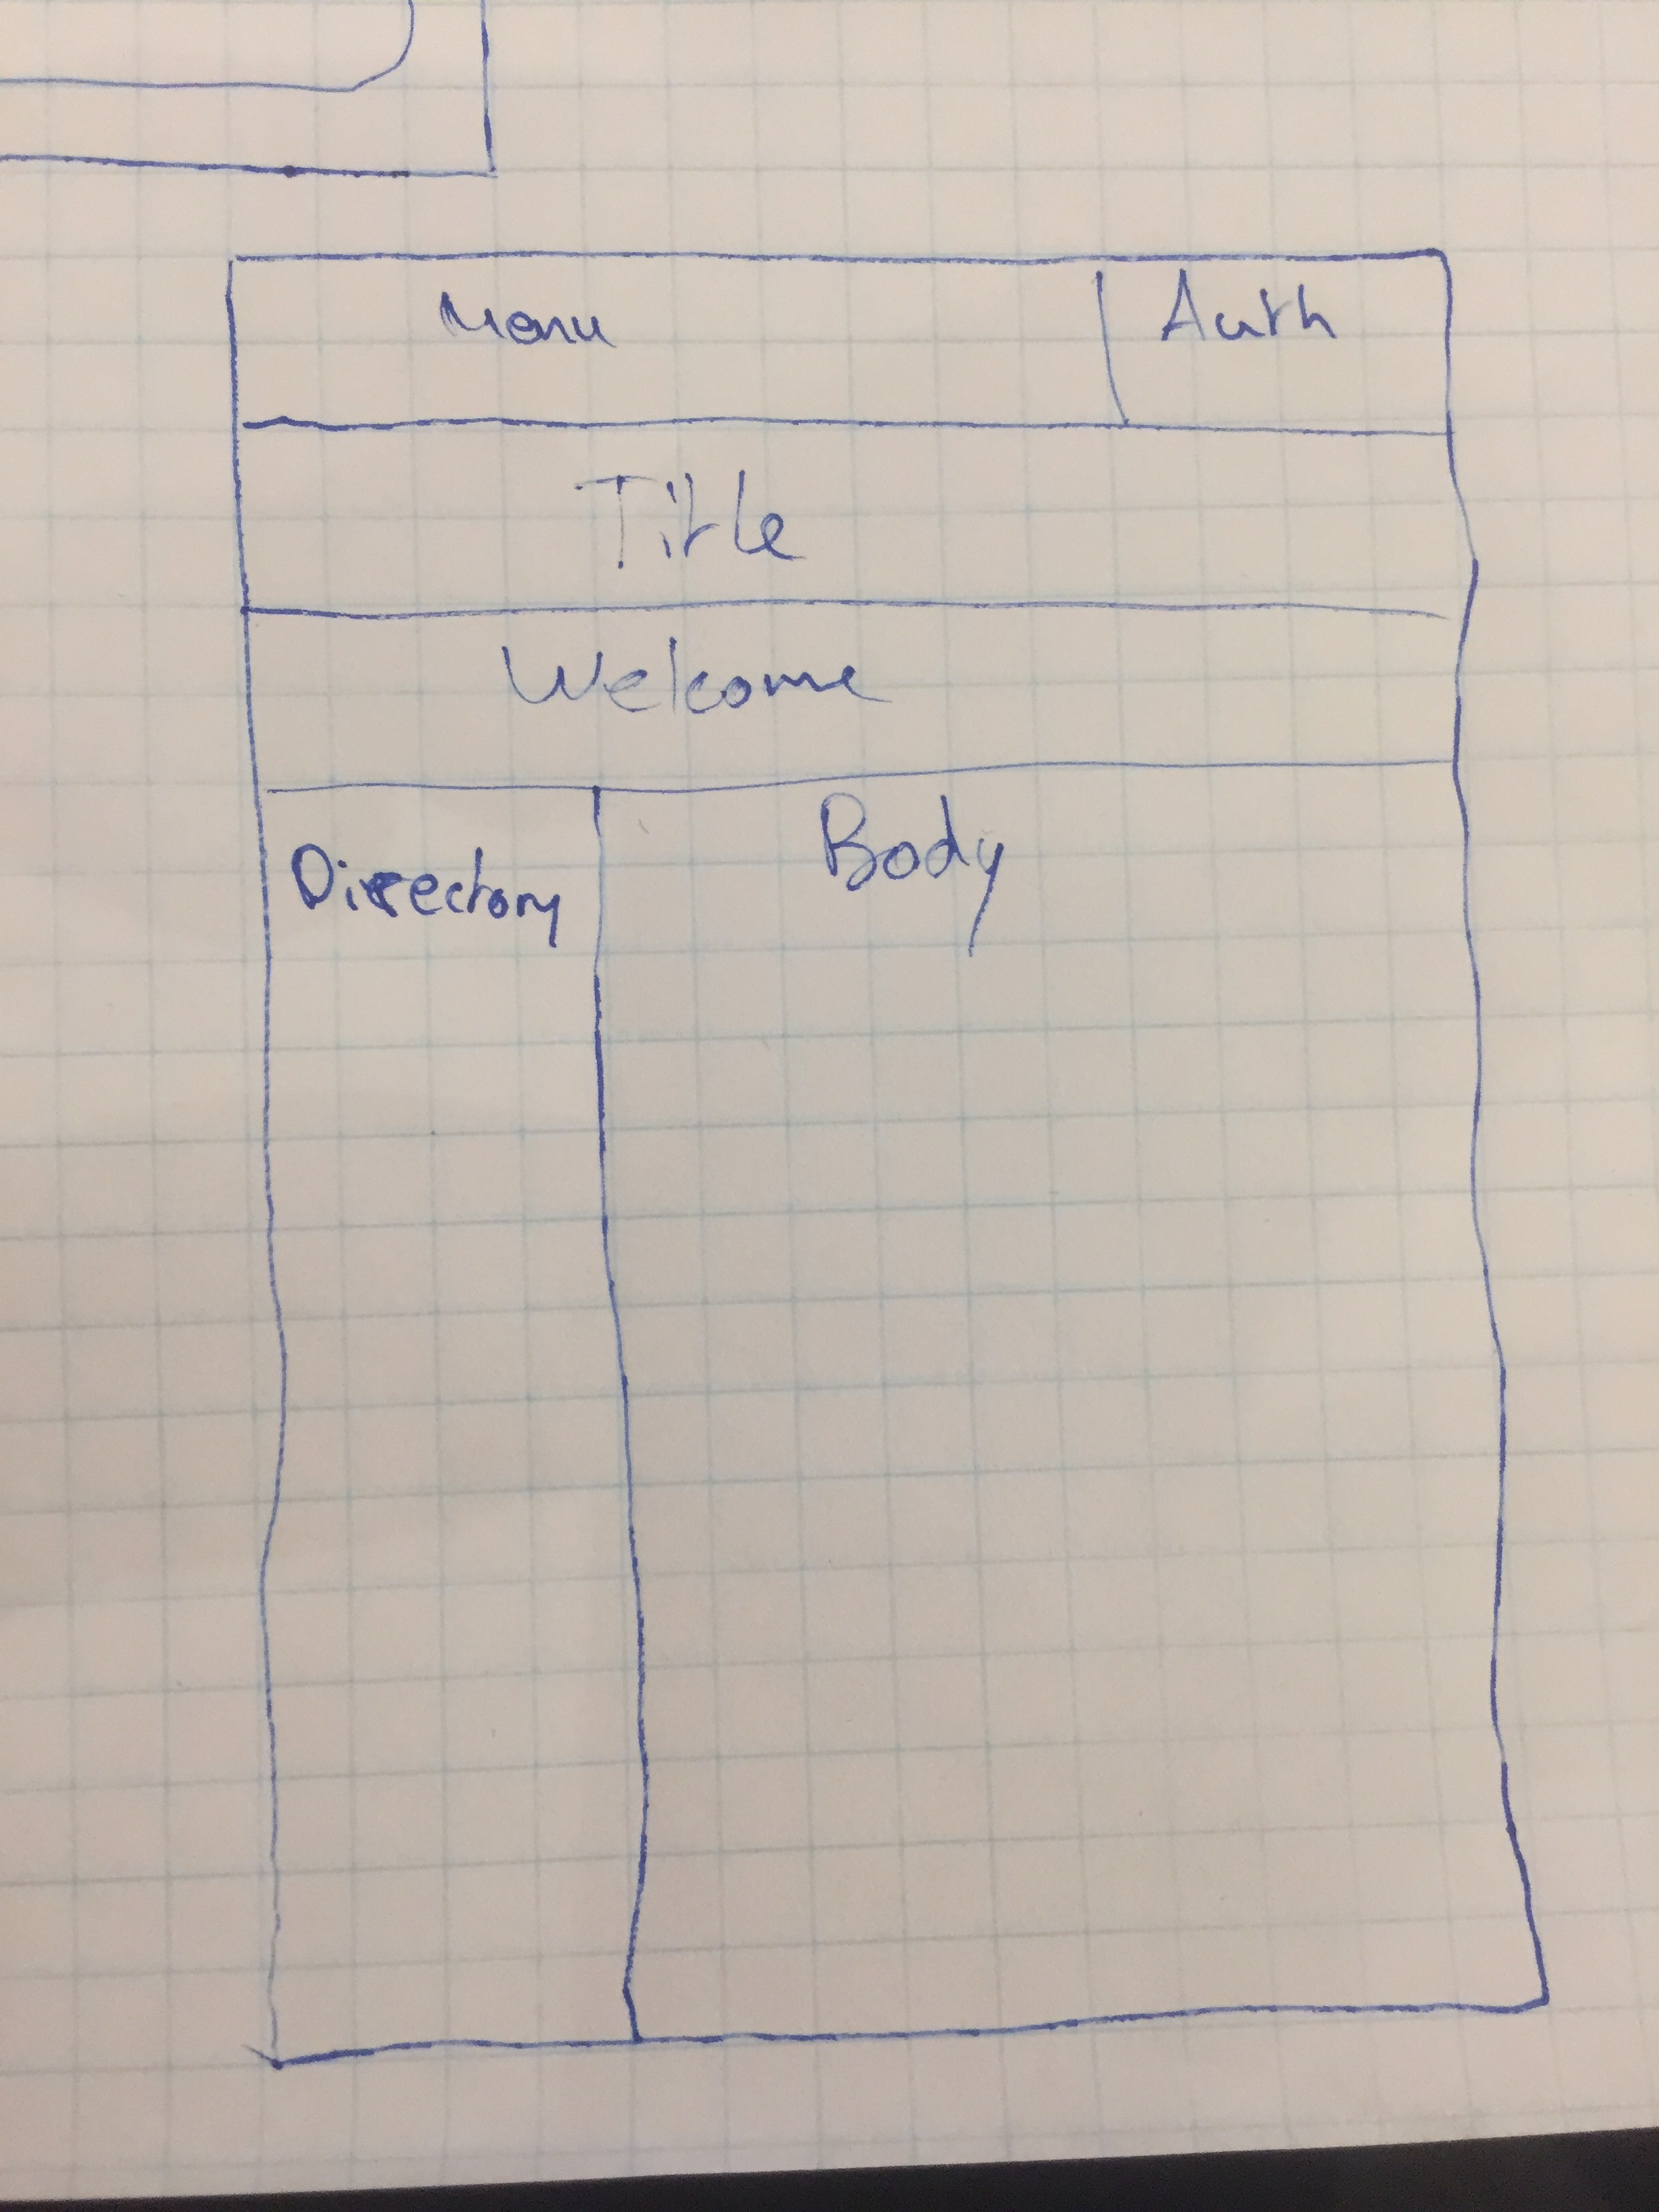 Menu Auth
Title
Welcome
Directory Body